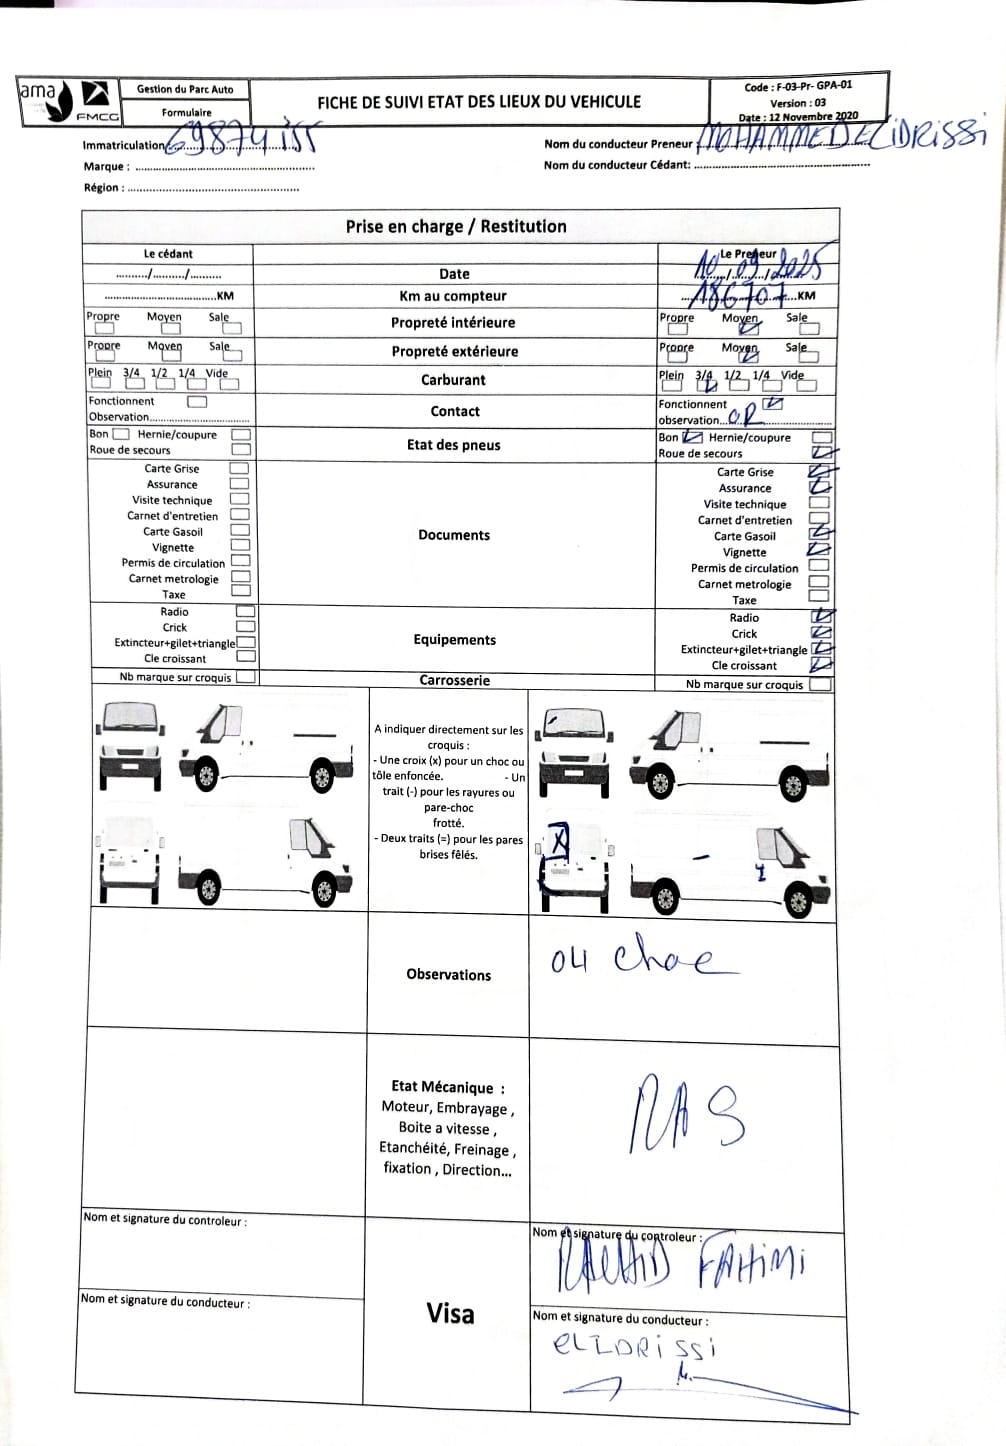 ama
FMCG
Gestion du Parc Auto
Formulaire
FICHE DE SUIVI ETAT DES LIEUX DU VEHICULE
Code : F-03-Pr- GPA-01
Version : 03
Date : 12 Novembre 2020
Immatriculation 69874 iss
Nom du conducteur Preneur : MOHAMMED ELIDRISSI
Marque : ........................................
Nom du conducteur Cédant: ........................................
Région : ........................................
Prise en charge / Restitution
Le cédant
Le Preneur
........../........../..........
Date
10/09/2025
..............................KM
Km au compteur
186707 KM
Propre Moyen Sale
Propreté intérieure
Propre Moyen Sale
Propre Moyen Sale
Propreté extérieure
Propre Moyen Sale
Plein 3/4 1/2 1/4 Vide
Carburant
Plein 3/4 1/2 1/4 Vide
Fonctionnent
Observation..............................
Contact
Fonctionnent
observation...OR..............................
Bon Hernie/coupure
Roue de secours
Etat des pneus
Bon Hernie/coupure
Roue de secours
Carte Grise
Assurance
Visite technique
Carnet d'entretien
Carte Gasoil
Vignette
Permis de circulation
Carnet metrologie
Taxe
Documents
Carte Grise
Assurance
Visite technique
Carnet d'entretien
Carte Gasoil
Vignette
Permis de circulation
Carnet metrologie
Taxe
Radio
Crick
Extincteur+gilet+triangle
Cle croissant
Equipements
Radio
Crick
Extincteur+gilet+triangle
Cle croissant
Nb marque sur croquis
Carrosserie
Nb marque sur croquis
A indiquer directement sur les
croquis :
- Une croix (x) pour un choc ou
tôle enfoncée. - Un
trait (-) pour les rayures ou
pare-choc
frotté.
- Deux traits (=) pour les pares
brises fêlés.
X
Observations
04 choc
Etat Mécanique :
Moteur, Embrayage ,
Boite a vitesse ,
Etanchéité, Freinage ,
fixation , Direction...
RAS
Nom et signature du controleur :
Nom et signature du controleur :
RACHID FAHIMI
Visa
Nom et signature du conducteur :
Nom et signature du conducteur :
ELIDRISSI